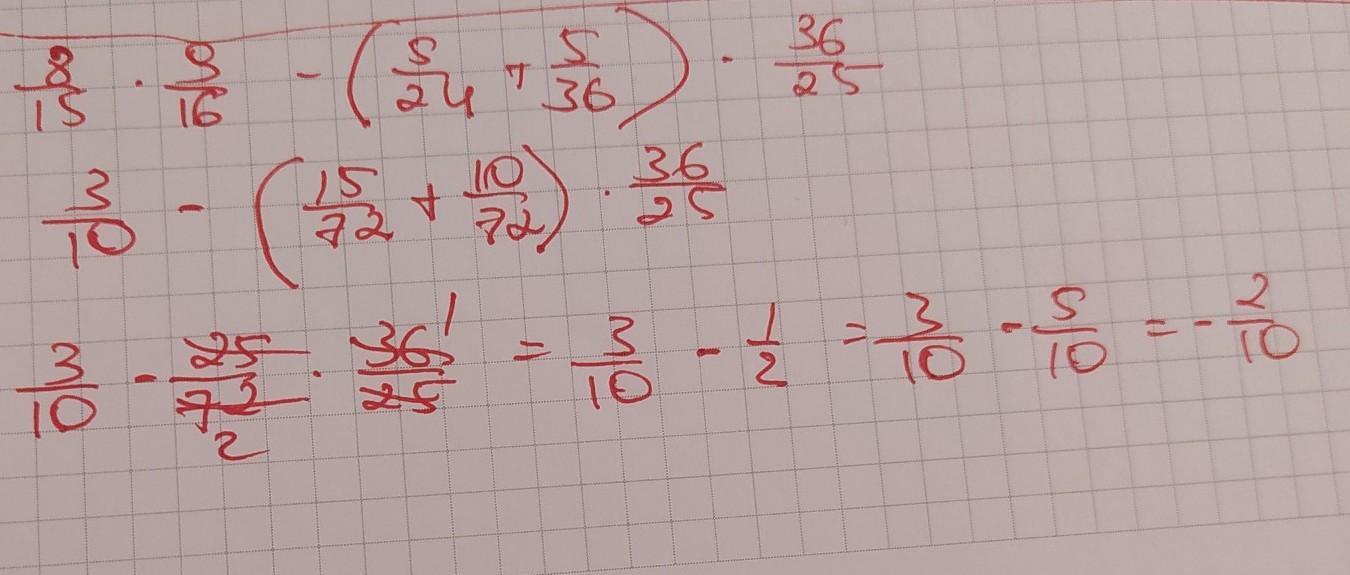 8/15 · 9/16 - (5/24 + 5/36) · 36/25
3/10 - (15/72 + 10/72) · 36/25
3/10 - 25/72 2 · 36 1/25 = 3/10 - 1/2 = 3/10 - 5/10 = - 2/10